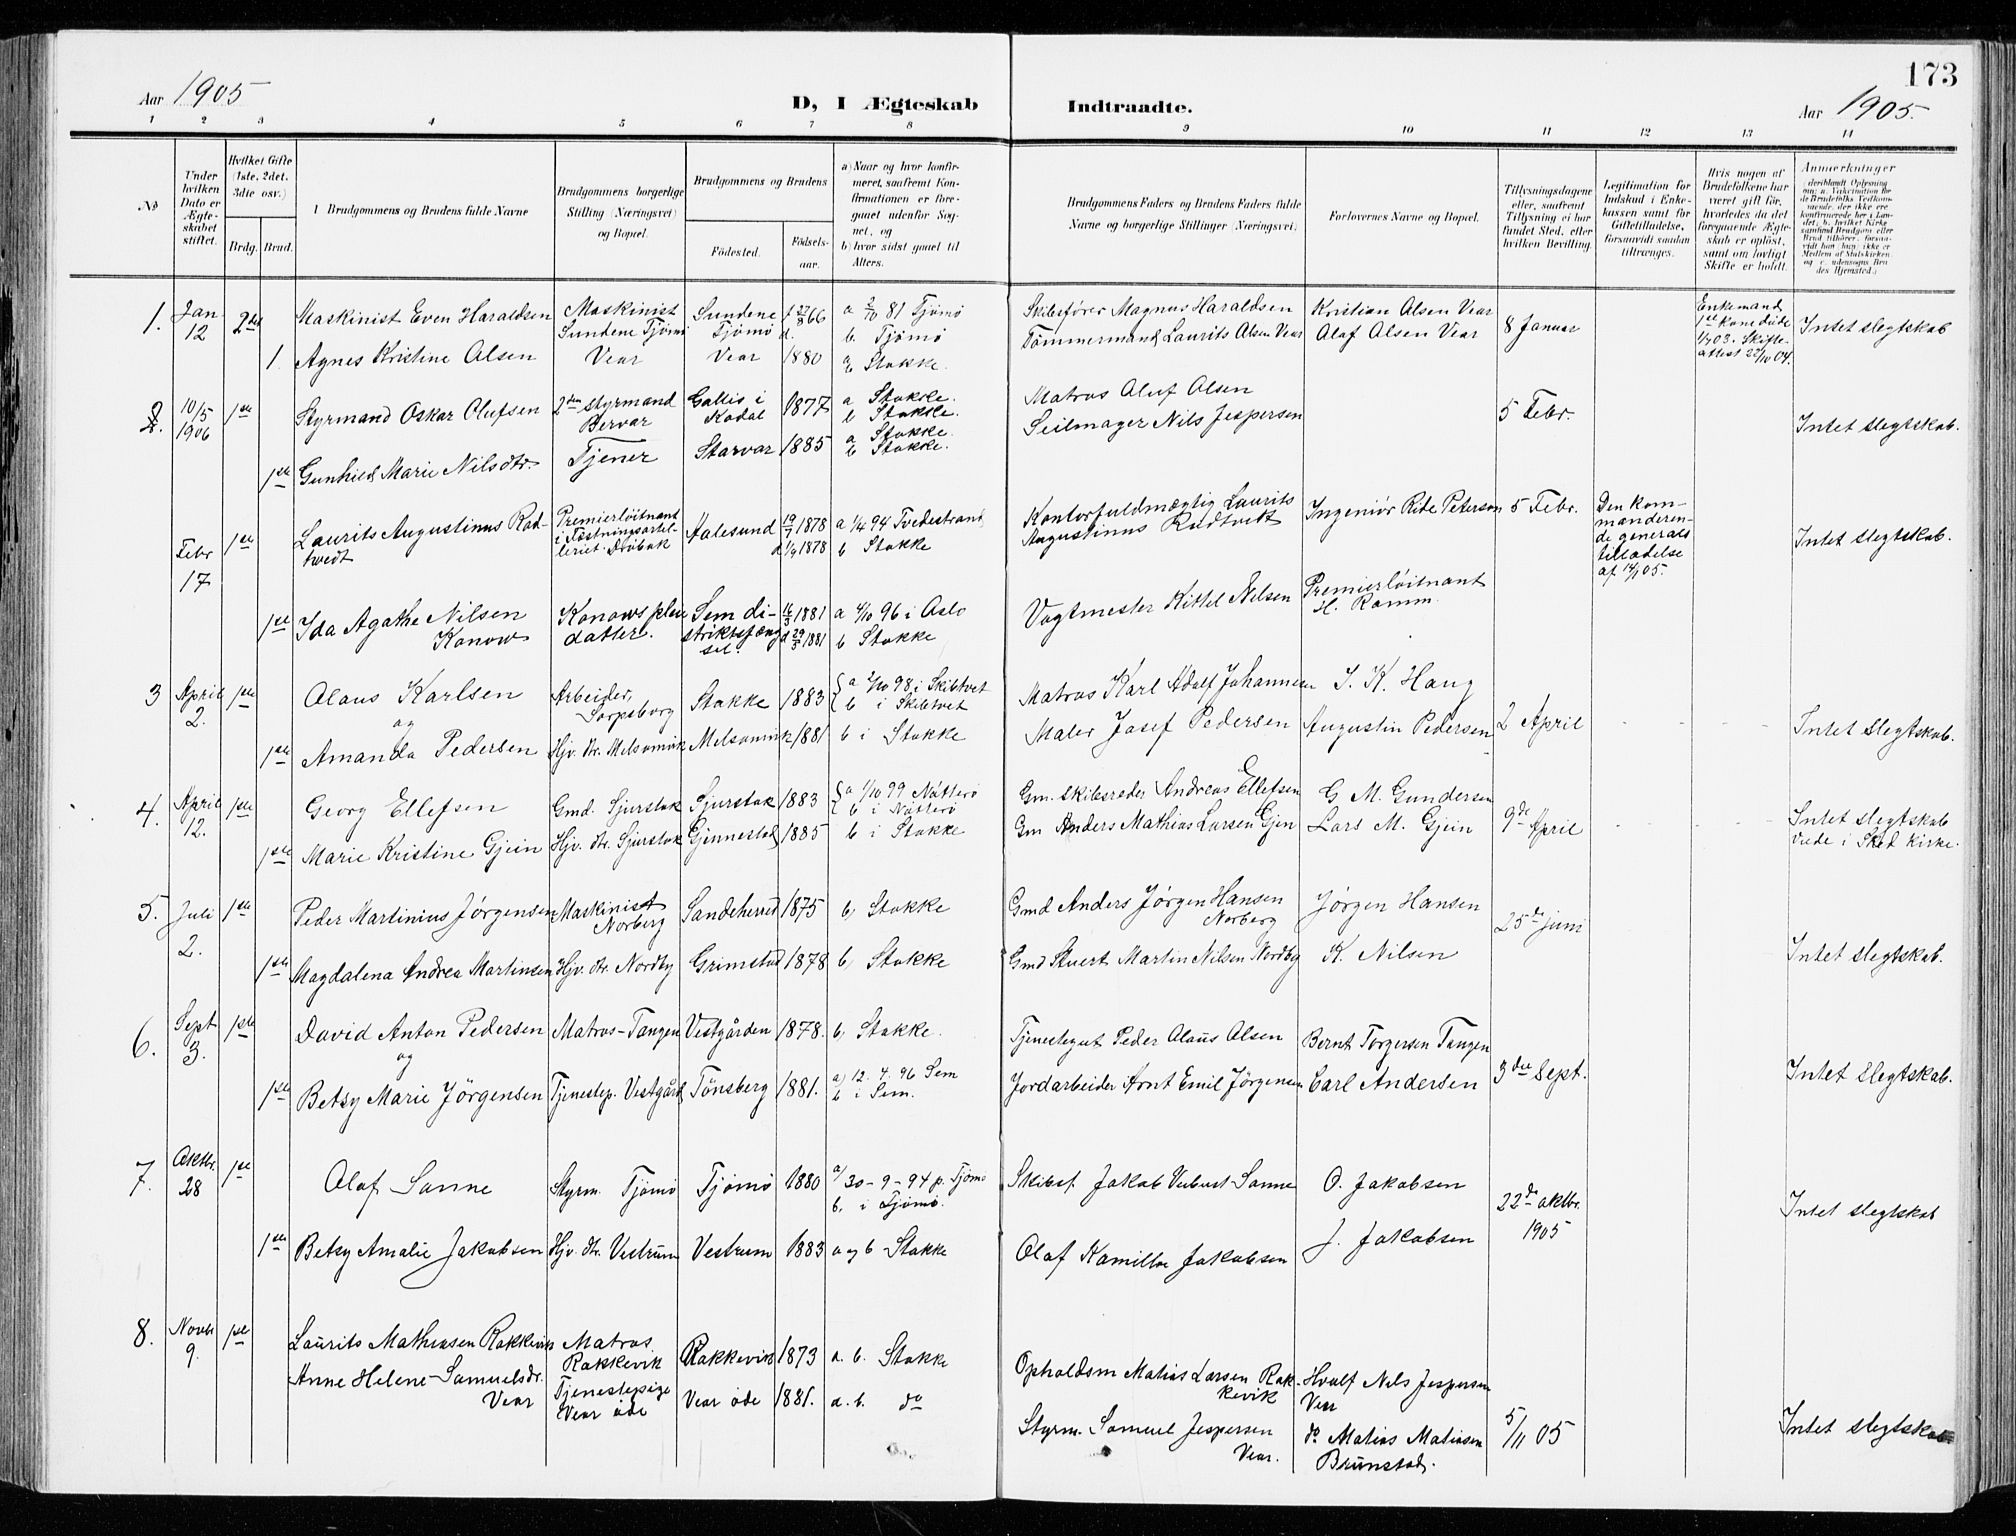 173
Aar 1905
D, I Ægteskab Indtraadte.
Aar 1905.
1 2 3 4 5 6 7 8 9 10 11 12 13 14
No
Under hvilken Dato er Ægteskabet stiftet.
Hvilket Gifte (1ste, 2det, 3die osv.)
Brdg. Brud.
1 Brudgommens og Brudens fulde Navne
Brudgommens borgerlige Stilling (Næringsvei) og Bopæl.
Brudgommens og Brudens
Fødested. Fødselsaar.
a) Naar og hvor konfirmeret, saafremt Konfirmationen er foregaaet udenfor Sognet, og
b) hvor sidst gaaet til Alters.
Brudgommens Faders og Brudens Faders fulde Navne og borgerlige Stillinger (Næringsvei)
Forlovernes Navne og Bopæl.
Tillysningsdagene eller, saafremt Tillysning ei har fundet Sted, efter hvilken Bevilling.
Legitimation for Indskud i Enkekassen samt for Giftetilladelse, forsaavidt saadan tiltrænges.
Hvis nogen af Brudefolkene har været gift før, hvorledes da det foregaaende Ægteskab er opløst, samt om lovligt Skifte er holdt.
Anmærkninger
1. Jan 12 2det Maskinist Even Haraldsen Maskinist Sundene Tjømø Sundene Tjømø f 27/8 66 a 2/10 81 Tjømø b. Tjømø Skibsfører Magnus Haraldsen Kristian Olsen Vear 8 Januar Enkemand 1ste kone døde 1/7 03. Skifteattest 22/10 04. Intet slegtskab
1. Agnes Kristine Olsen Vear Vear 1880 Stokke. Tømmermand Laurits Olsen Vear Olaf Olsen Vear
2. 10/5 1906 1ste Styrmand Oskar Olufsen 2den styrmand Bervar Gallis i Kodal 1877 a Stokke. b Stokke. Matros Oluf Olsen 5 Febr. Intet slegtskab.
1ste Gunhild Marie Nilsdtr. Tjener Starvar 1885 a Stokke. b Stokke. Seilmager Nils Jespersen
Febr 17 1ste Laurits Augustinus Rodtvedt Premierløitnant i Fæstningsartelleriet. Drøbak Aalesund 19/7 1878 d 1/9 1878 a 1/4 94 Tvedestrand b Stokke Kontorfuldmægtig Laurits Augustinus Rudtvedt Ingeniør Ride Peterson 5 Febr. Den kommanderende generals tilladelse af 14/1 05. Intet slegtskab.
1ste Ida Agathe Nilsen Konow Konows pleiedatter. Sem distriktsfængsel. 16/3 1881 d 29/3 1881 a 4/10 96 i Oslo b Stokke Vagtmester Kittel Nilsen Premierløitnant H. Ramm.
3 April 2. 1ste Olaus Karlsen Arbeider, Sarpsborg Stokke 1883 a 2/10 98 i Skibtvet b i Skibtvet Matros Karl Adolf Johannesen I. K. Haug 2 April Intet slegtskab.
og
1ste Amanda Pedersen Hjv. dtr. Melsomvik Melsomvik 1881 b i Stokke Maler Josef Pedersen Augustin Pedersen
4. April 12. 1ste Georg Ellefsen Gmd. Sjurstok Sjurstok 1883 a 1/10 99 Nøtterø b i Nøtterø Gm. skibsreder Andreas Ellefsen G. M. Gundersen 9de April Intet slegtskab Viede i Sked kirke.
1ste Marie Kristine Gjein Hjv. dtr. Sjurstok Gjennestad 1885 b i Stokke Gm Anders Mathias Larsen Gjen Lars M. Gjein
5. Juli 2. 1ste Peder Martinius Jørgensen Maskinist Norberg Sandeherred 1875 b, Stokke Gmd Anders Jørgen Hansen Norberg Jørgen Hansen 25de juni Intet slegtskab.
1ste Magdalena Andrea Martinsen Hjv. dtr. Nordby Grimstad 1878 b, Stokke Gmd Stuert Martin Nilsen Nordby K. Nilsen
6. Sept 3. 1ste David Anton Pedersen Matros-Tangen Vestgården 1878. b, Stokke. Tjenestegut Peder Olaus Olsen Bernt Torgersen Tangen 3die Sept. Intet slegtskab.
og
1ste Betsy Marie Jörgensen Tjenestep. Vestgård Tönsberg 1881. a) 12. 4. 96 Sem b i Sem. Jordarbeider Arnt Emil Jörgensen Carl Andersen
7. Oktbr. 28 1ste Olaf Sanne Styrm. Tjømø Tjømø 1880 a/ 30-9-94 p. Tjømø b, i Tjømø. Skibsf. Jakob Sanne O. Jakobsen 22de oktbr. 1905 Intet slegtskab
1ste Betsy Amalie Jakobsen Hjv. dtr. Vestrum Vestrum 1883 a og b Stokke Olaf Kamillo Jakobsen J. Jakobsen
8. Novbr 9. 1ste Laurits Mathiasen Rakkevik Matros Rakkevik Rakkevik 1873 a. b. Stokke Opholdsm Matias Larsen Rakkevik Hvalf Nils Jespersen Vear 5/11 05 Intet slegtskab
Anne Helene Samuelsdr. Vear Tjenestepige Vear öde Vear öde 1881. a. b. do Styrm. Samuel Jespersen Vear. do. Matias Matiasen Brunstad.